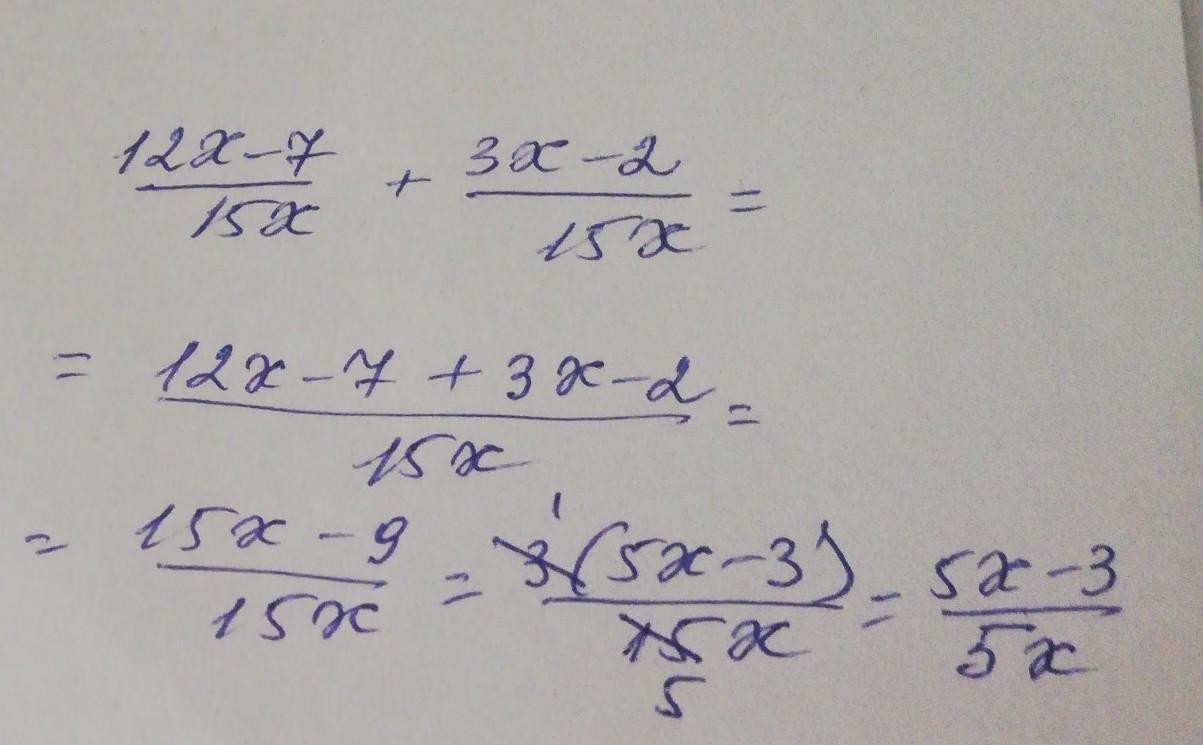 (12x-7)/(15x) + (3x-2)/(15x) =
= (12x-7+3x-2)/(15x) =
= (15x-9)/(15x) = (3(5x-3))/(15x) = (5x-3)/(5x)
1
5